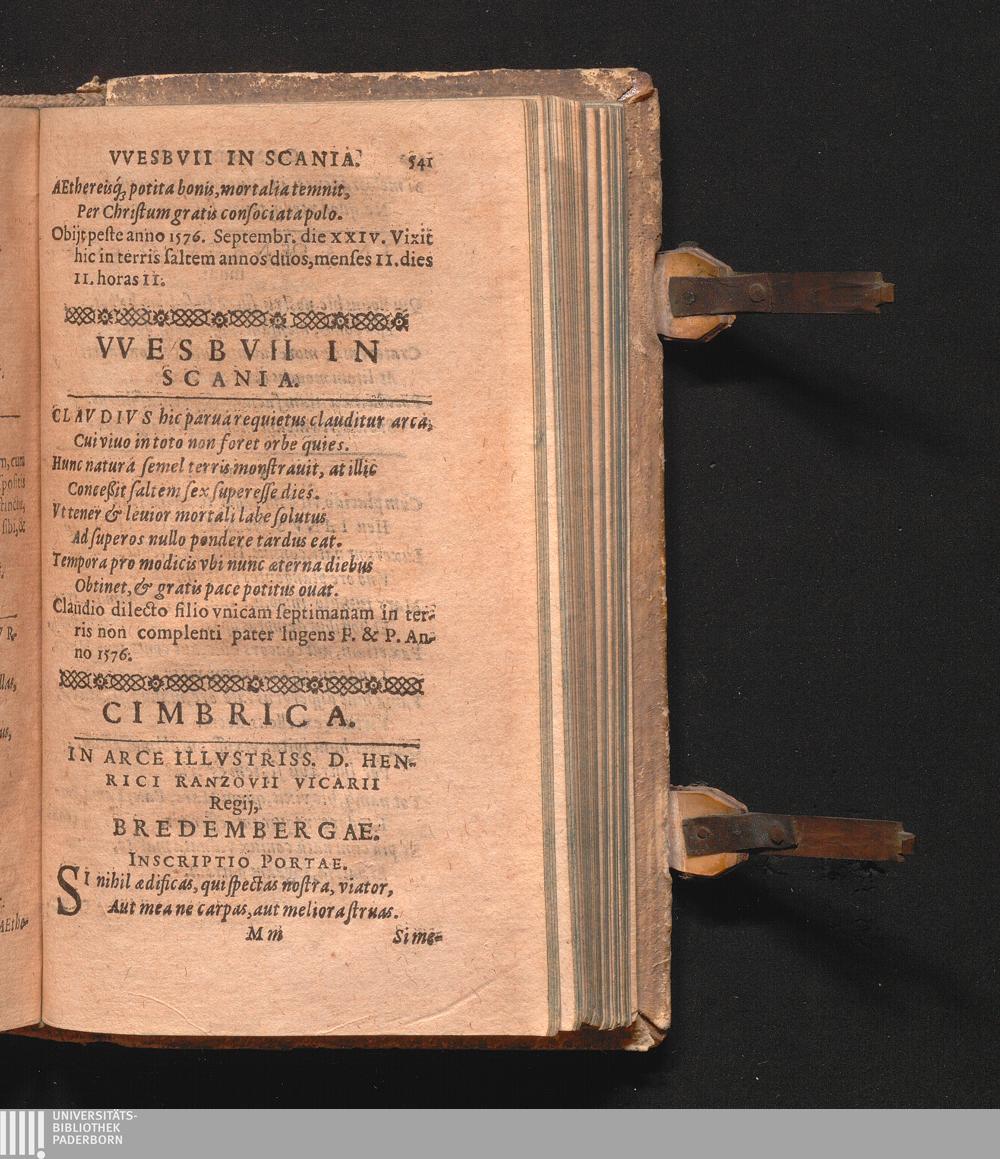 VVESBVII IN SCANIA. 541
AEthereisq́; potita bonis, mortalia temnit,
Per Chriſtum gratis conſociata polo.
Obijt peſte anno 1576. Septembr. die XXIV. Vixit
hic in terris ſaltem annos duos, menſes II. dies
II. horas II.
VVESBVII IN
SCANIA.
CLAVDIVS hic parua requietus clauditur arca,
Cui viuo in toto non foret orbe quies.
Hunc natura ſemel terris monſtrauit, at illic
Conceßit ſaltem ſex ſupereſſe dies.
Vt tener & leuior mortali labe ſolutus
Ad ſuperos nullo pondere tardus eat.
Tempora pro modicis vbi nunc æterna diebus
Obtinet, & gratis pace potitus ouat.
Claudio dilecto filio vnicam ſeptimanam in ter-
ris non complenti pater lugens F. & P. An-
no 1576.
CIMBRICA.
IN ARCE ILLVSTRISS. D. HEN-
RICI RANZOVII VICARII
Regij,
BREDEMBERGAE.
INSCRIPTIO PORTAE.
SI nihil ædificas, qui ſpectas noſtra, viator,
Aut mea ne carpas, aut meliora ſtruas.
Mm Si me-
UNIVERSITÄTS-
BIBLIOTHEK
PADERBORN